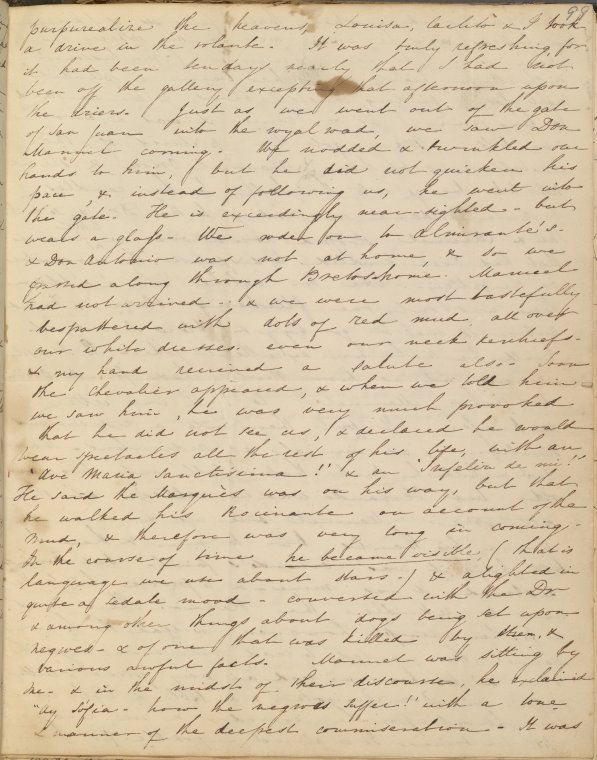 99
purpurealize the heavens, Louisa, Carlito & I took
a drive in the volante. It was truly refreshing, for
it had been ten days nearly that I had not
been off the gallery excepting that afternoon upon
the driers. Just as we went out of the gate
of San Juan into the royal road, we saw Don
Manuel coming. We nodded & twinkled our
hands to him, but he did not quicken his
pace, & instead of following us, he went into
the gate. He is exceedingly near-sighted - but
wears a glass - We rode on to Almirante's -
& Don Antonio was not at home, & so we
passed along through Bretos home. Manuel
had not arrived - & we were most tastefully
bespattered with dots of red mud all over
our white dresses. even our neck kerchiefs -
& my hand received a salute also - Soon
the Chevalier appeared, & when we told him
we saw him, he was very much provoked
that he did not see us, & declared he would
wear spectacles all the rest of his life, with an
"Ave Maria Sanctisima!" & an "Infelix de mi!"
He said the Marquès was on his way, but that
he walked his Rocinante on account of the
mud, & therefore was very long in coming -
In the course of time he became visible (that is
language we use about stars -) & alighted in
quite a sedate mood - conversed with the Dr
& among other things about dogs being set upon
negroes - & of one that was killed by them, &
various awful facts. Manuel was sitting by
me - & in the midst of their discourse, he exclaimed
"ay Sofia - how the negroes suffer!" with a tone
& manner of the deepest commiseration - It was